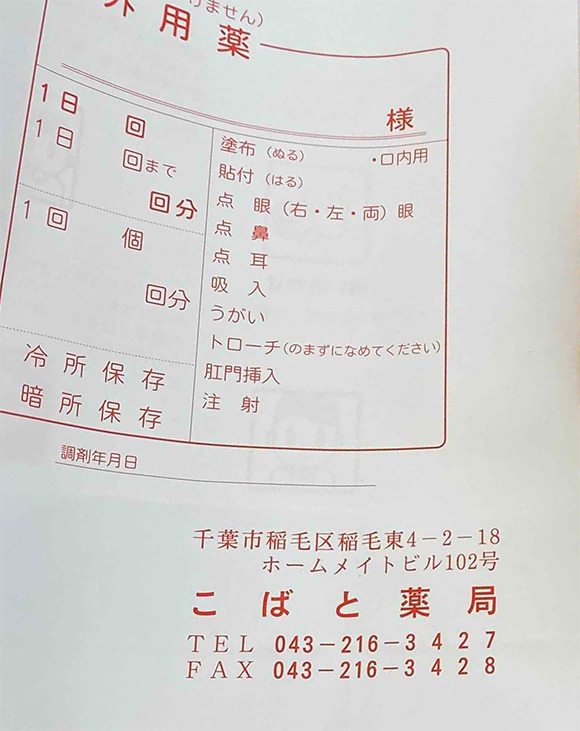 けません）
外用薬
様
1日 回
1日 回まで
回分
1回 個
回分
冷所保存
暗所保存
塗布（ぬる） ・口内用
貼付（はる）
点眼（右・左・両）眼
点鼻
点耳
吸入
うがい
トローチ（のまずになめてください）
肛門挿入
注射
調剤年月日
千葉市稲毛区稲毛東4－2－18
ホームメイトビル102号
こばと薬局
TEL 043－216－3427
FAX 043－216－3428